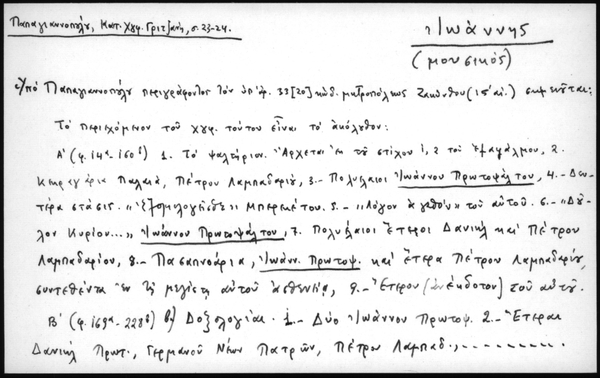 Παπαγιαννοπούλου, Κατ. Χφφ. Γριτσάνη, σ. 23-24.
Ἰωάννης
(μουσικός)
Ὑπό Παπαγιαννοπούλου περιγράφοντος τόν ὑπ' ἀρ. 33[20] κώδ. μητροπόλεως Ζακύνθου (αἰ.) σημειοῦται:
Τό περιεχόμενον τοῦ χφφ. τούτου εἶναι τό ἀκόλουθον:
Α' 1. Τό ψαλτήριον. Ἄρχεται ἐκ τοῦ στίχου τοῦ 2.
Κεκραγάρια Παλαιά, Πέτρου Λαμπαδαρίου, 3.- Πολυέλαιοι Ἰωάννου Πρωτοψάλτου, 4.- Δευ-
τέρα στάσις. "Ἐξομολογεῖσθε" Μπερεκέτου. 5.- "Λόγον ἀγαθόν" τοῦ αὐτοῦ. 6.- "Δοῦ-
λοι Κύριον..." Ἰωάννου Πρωτοψάλτου, 7. Πολυέλαιοι Ἕτεροι Δανιήλ καί Πέτρου
Λαμπαδαρίου, 8.- Πασαπνοάρια, Ἰωάνν. Πρωτοψ. καί ἕτερα Πέτρου Λαμπαδαρίου,
συντεθέντα ἐν τῇ μεγίστῃ αὐτοῦ ἀσθενείᾳ, 9.- Ἕτερον (ἀνέκδοτον) τοῦ αὐτοῦ.
Β' Δοξολογίαι. 1.- Δύο Ἰωάννου Πρωτοψ. 2.- Ἕτεραι
Δανιήλ Πρωτ., Γερμανοῦ Νέων Πατρῶν, Πέτρου Λαμπαδ., - - - - - - - -